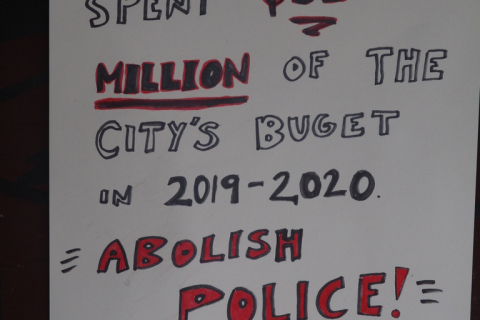 SPENT
MILLION OF THE
CITY'S BUGET
IN 2019-2020.
ABOLISH
POLICE!